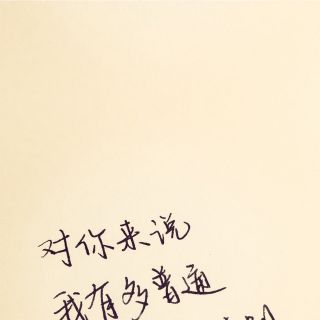 对你来说
我有多普通